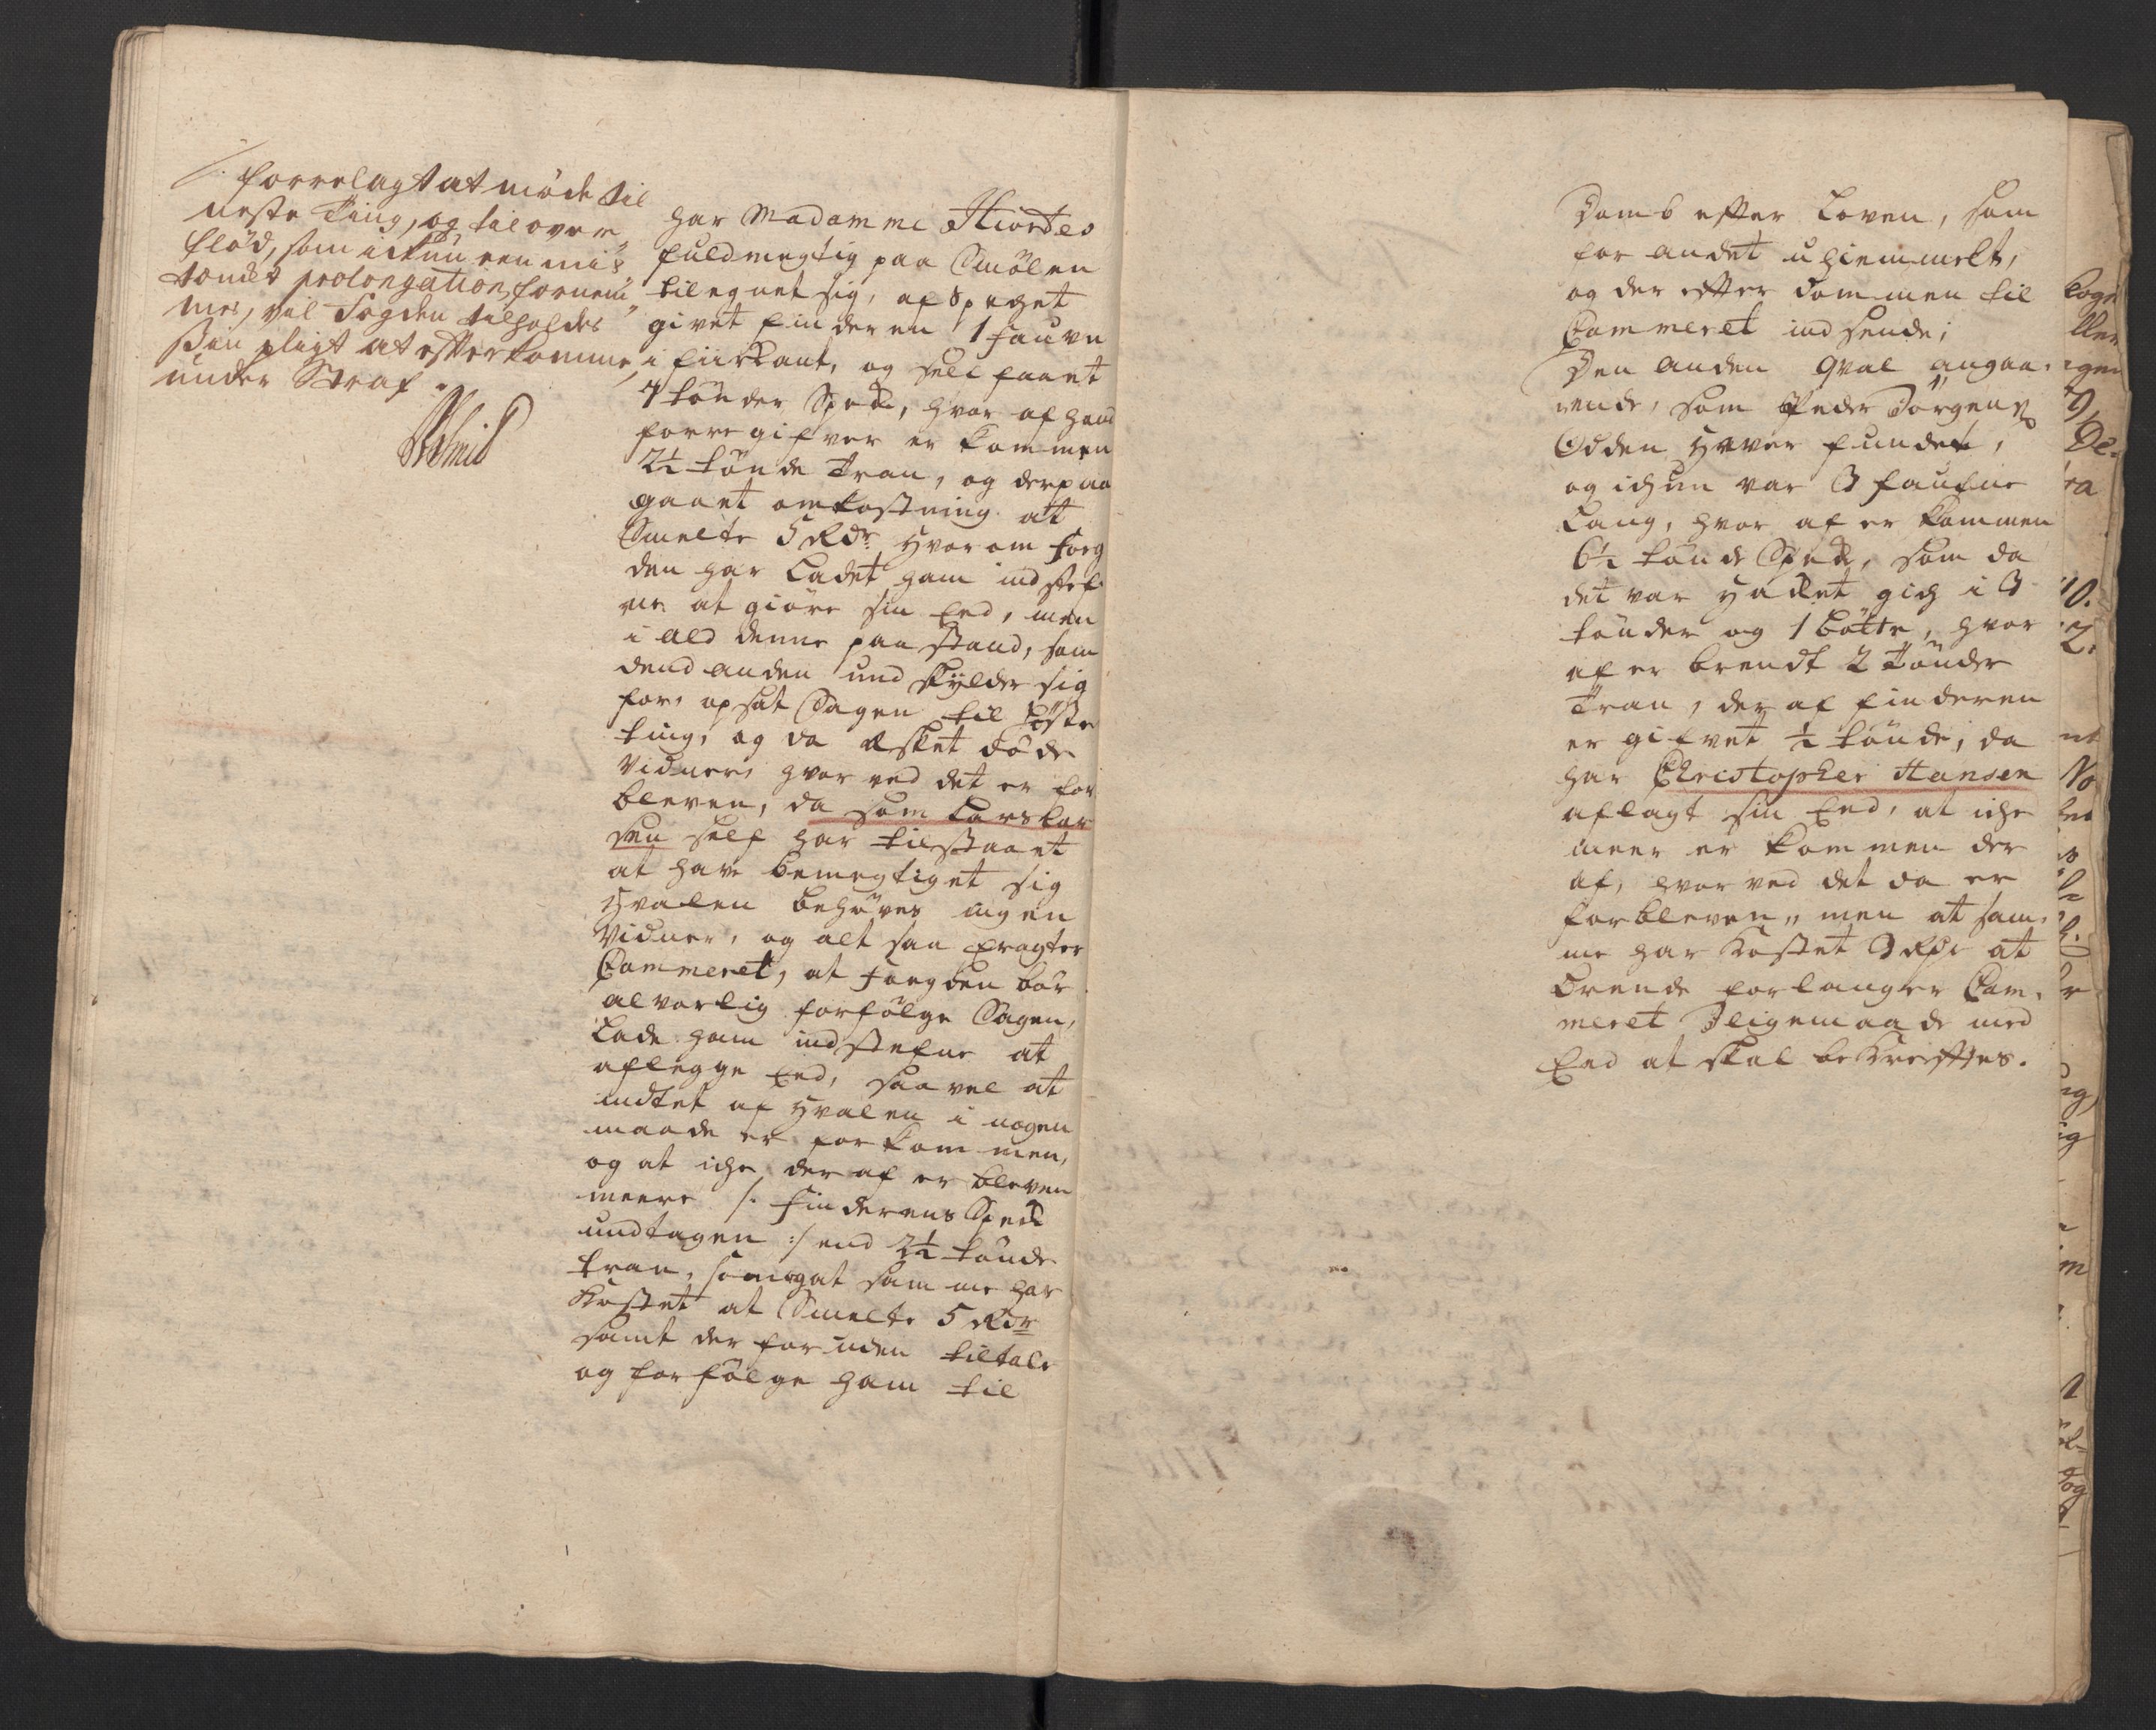 /: forrelagt at møde til
neste Ting, og til over„
flød, som ickun een mis„
tendt prolongation fornem„
mes, vil Fogden tilholdes
sin pligt at efterkomme,
under Straf.
har Madamme Hiortes
fuldmegtig paa Smølen
tilegnet sig, af Spechet
givet finderen 1 fauvn
i fiirkant, og self faaet
7 tønder Speck, hvor af hand
forregifver er kommen
2½ tønde Tran, og derpaa
gaaet omkostning at
Smelte 5 Rdr hvorom Foeg
den har Ladet ham indstef
ne at giøre sin Eed, men
i ald denne paastand, som
dend anden undskylder sig
for, opsat Sagen til Høste
ting, og da Esket døde
Vidner, hvor ved det er for
bleven, da som Lars Lar
sen self har tilstaaet
at have bemegtiget sig
Hvalen behøves ingen
Vidner, og alt saa Eragter
Cammeret, at Foegden bør
alvorlig forfølge Sagen,
Lade ham indstefne at
aflegge Eed, saavel at
indtet af Hvalen i nogen
maade er forkommen,
og at iche der af er bleven
meere /: finderens Speck
undtagen :/ end 2½ tønde
tran, som at samme har
Kostet at Smelte 5 Rdr
samt der foruden tiltale
og forfølge ham til
Domb efter Loven, som
for andet uhiemmelt,
og der efter Dommen til
Cammeret indsende;
Den anden Qval angaa„
ende, som Peder Jørgens.
Odden Hver funden,
og ichun var 3 faufne
Lang, hvor af er kommen
6½ tønde Speck, som da
det var hacket gich i 3
tønder og 1 bøtte, hvor
af er brendt 2 Tønder
Tran, der af finderen
er gifvet ½ tønde, da
har Christopher Hansen
aflagt sin Eed, at iche
meer er kommen der
af, hvor ved det da er
forbleven„ men at sam„
me har Kostet 3 Rdr at
brende forlanger Cam„
meret Jligemaade med
Eed at skal bekreftes.